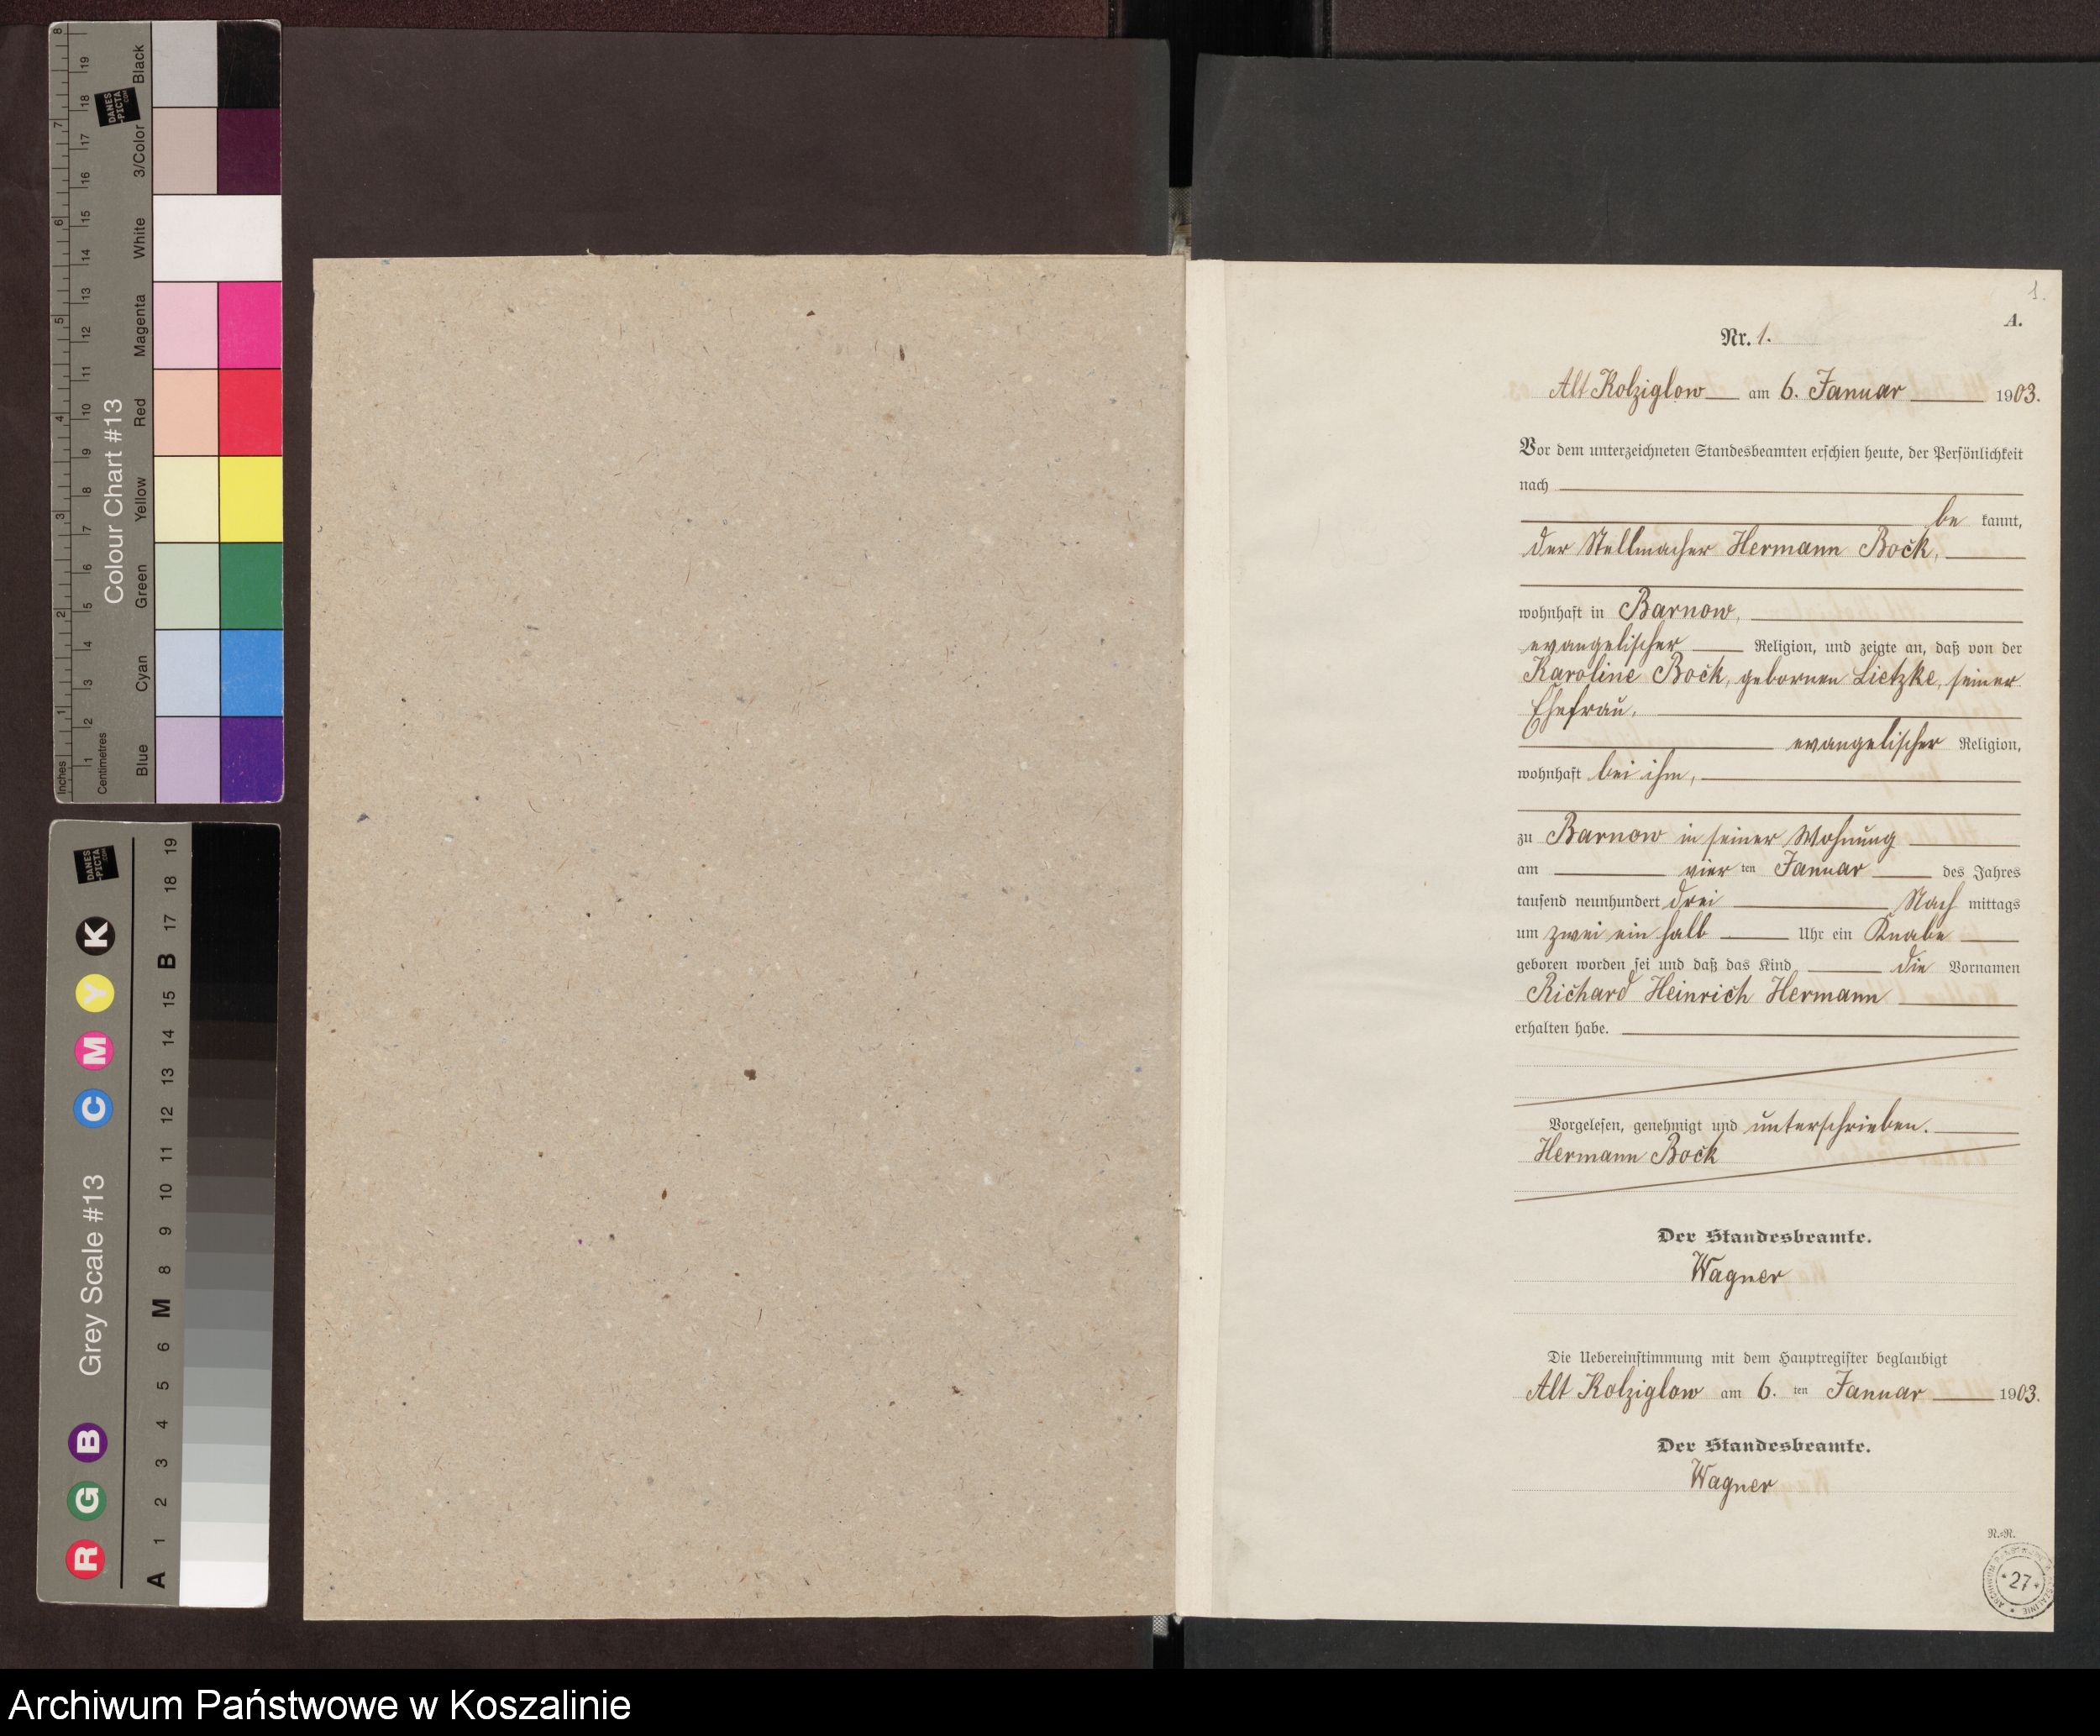 1.
A.
Nr. 1.
Alt Kolziglow am 6. Januar 1903.
Vor dem unterzeichneten Standesbeamten erschien heute, der Persönlichkeit
nach
be kannt,
der Stellmacher Hermann Bock,
wohnhaft in Barnow,
evangelischer Religion, und zeigte an, daß von der
Karoline Bock, gebornen Lietzke, seiner
Ehefrau,
evangelischer Religion,
wohnhaft bei ihm,
zu Barnow in seiner Wohnung
am vier ten Januar des Jahres
tausend neunhundert drei Nach mittags
um zwei ein halb Uhr ein Knabe
geboren worden sei und daß das Kind die Vornamen
Richard Heinrich Hermann
erhalten habe.
Vorgelesen, genehmigt und unterschrieben.
Hermann Bock
Der Standesbeamte.
Wagner
Die Uebereinstimmung mit dem Hauptregister beglaubigt
Alt Kolziglow am 6. ten Januar 1903.
Der Standesbeamte.
Wagner
N.-R.
*27*
Colour Chart #13
Inches
Centimetres
Blue Cyan Green Yellow Red Magenta White 3/Color Black
1 2 3 4 5 6 7 8
1 2 3 4 5 6 7 8 9 10 11 12 13 14 15 16 17 18 19
DANES
-PICTA
.COM
Grey Scale #13
R G B C M Y K
A 1 2 3 4 5 6 M 8 9 10 11 12 13 14 15 B 17 18 19
DANES
-PICTA
.COM
Archiwum Państwowe w Koszalinie